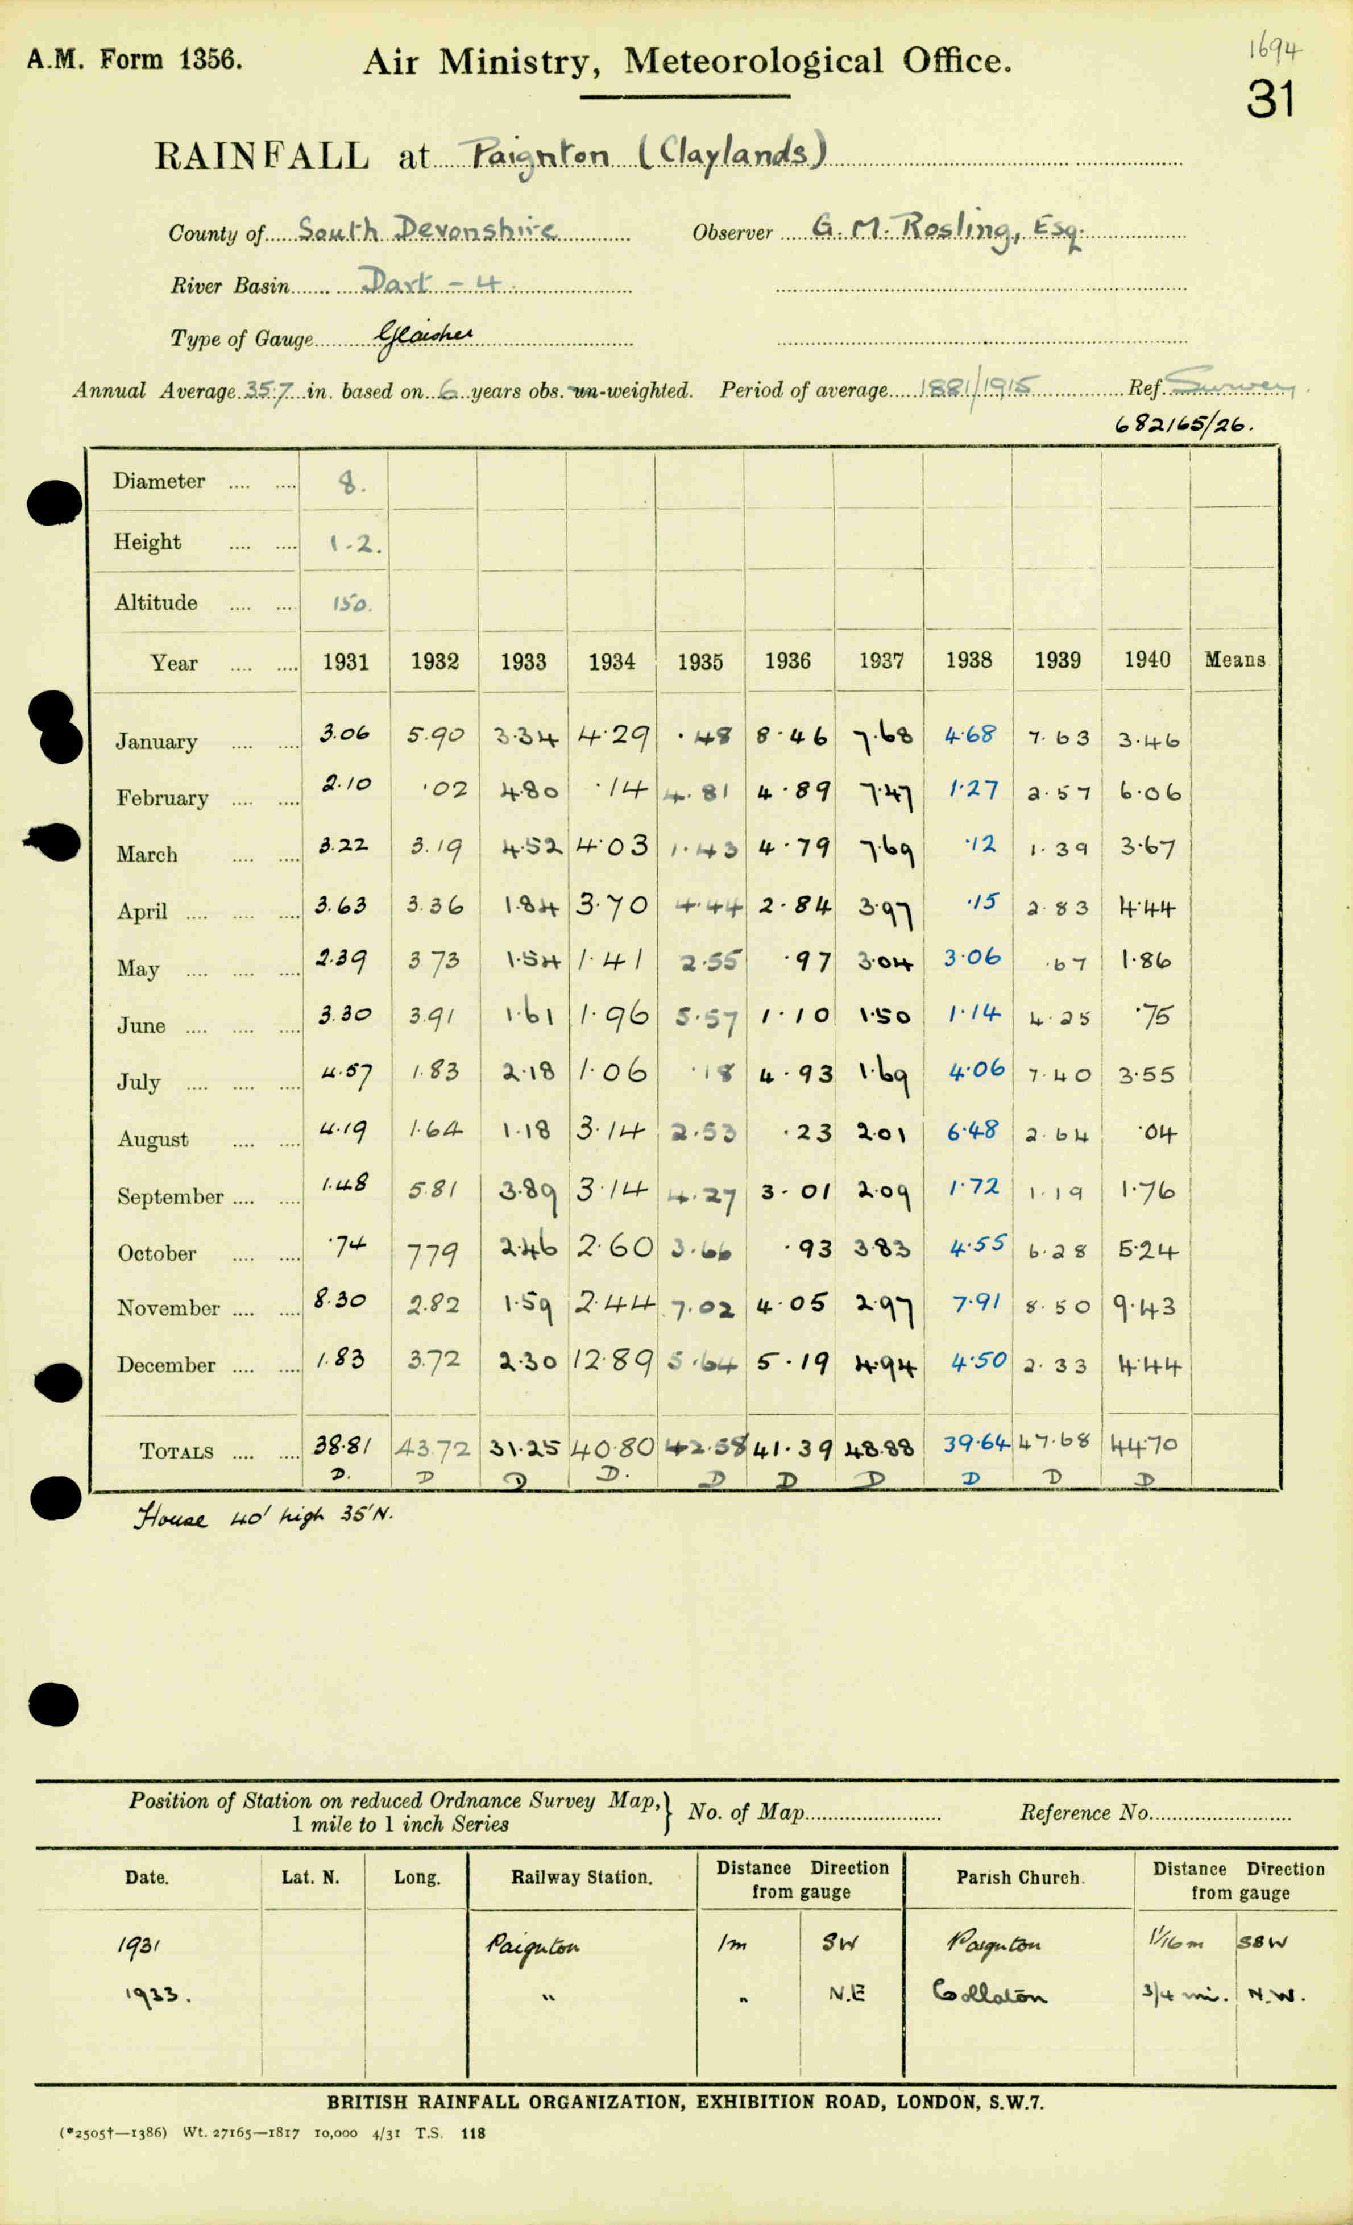 A.M. Form 1356.
Air Ministry, Meteorological Office.
1694
31
RAINFALL at Paignton (Claylands)
County of South Devonshire Observer G. M. Rosling, Esq.
River Basin Dart - 4
Type of Gauge Glaisher
Annual Average 35.7 in. based on 6 years obs. un-weighted. Period of average 1881/1915 Ref. Survey
682165/26.
Diameter .... .... 8.
Height .... .... 1-2.
Altitude .... .... 150.
Year .... .... 1931 1932 1933 1934 1935 1936 1937 1938 1939 1940 Means
January .... .... 3.06 5.90 3.34 4.29 .48 8.46 7.68 4.68 7.63 3.46
February .... .... 2.10 .02 4.80 .14 4.81 4.89 7.47 1.27 2.57 6.06
March .... .... 3.22 3.19 4.52 4.03 1.43 4.79 7.69 .12 1.39 3.67
April .... .... .... 3.63 3.36 1.84 3.70 4.44 2.84 3.97 .15 2.83 4.44
May .... .... .... 2.39 3 73 1.54 1.41 2.55 .97 3.04 3.06 .67 1.86
June .... .... .... 3.30 3.91 1.61 1.96 5.57 1.10 1.50 1.14 4.25 .75
July .... .... .... 4.57 1.83 2.18 1.06 .18 4.93 1.69 4.06 7.40 3.55
August .... .... 4.19 1.64 1.18 3.14 2.53 .23 2.01 6.48 2.64 .04
September .... .... 1.48 5.81 3.89 3.14 4.27 3.01 2.09 1.72 1.19 1.76
October .... .... .74 779 2.46 2.60 3.66 .93 3.83 4.55 6.28 5.24
November .... .... 8.30 2.82 1.59 2.44 7.02 4.05 2.97 7.91 8.50 9.43
December .... .... 1.83 3.72 2.30 12.89 5.64 5.19 4.94 4.50 2.33 4.44
TOTALS .... .... 38.81 43.72 31.25 40.80 42.58 41.39 48.88 39.64 47.68 44.70
D. D D D. D D D D D D
House 40' high 35'N.
Position of Station on reduced Ordnance Survey Map,} No. of Map Reference No.
1 mile to 1 inch Series
Date. Lat. N. Long. Railway Station. Distance Direction from gauge Parish Church. Distance Direction from gauge
1931 Paignton 1m SW Paignton 1 1/16 m SSW
1933. " " N.E Collaton 3/4 mi. N.W.
BRITISH RAINFALL ORGANIZATION, EXHIBITION ROAD, LONDON, S.W.7.
(*2505†—1386) Wt. 27165—1817 10,000 4/31 T.S. 118